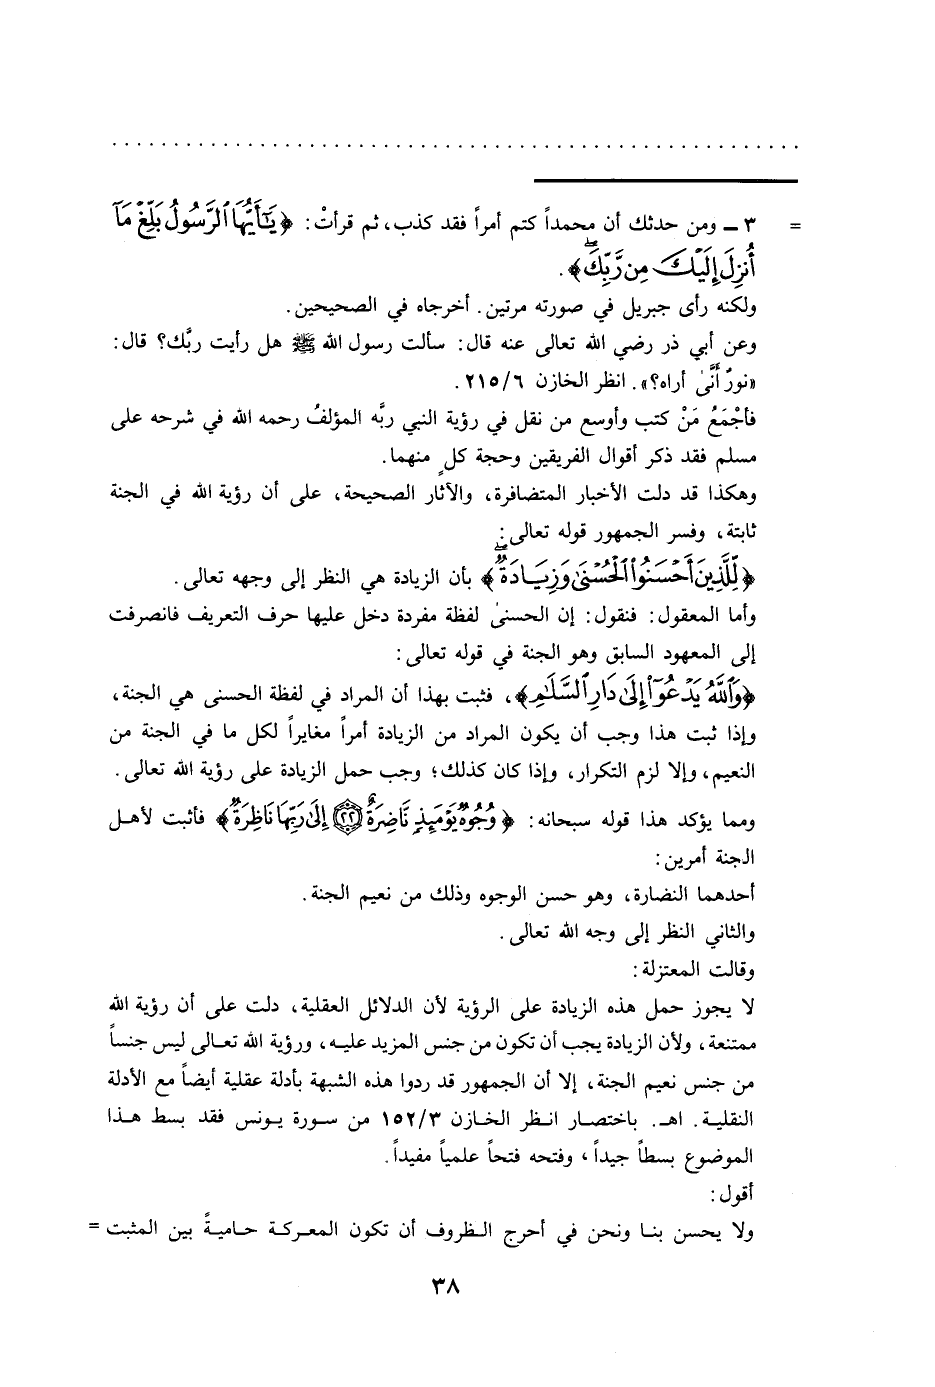 = ٣ ــ ومن حدثك أن محمداً كتم أمراً فقد كذب، ثم قرأتْ: ﴿يَٰٓأَيُّهَا ٱلرَّسُولُ بَلِّغْ مَآ
أُنزِلَ إِلَيْكَ مِن رَّبِّكَ﴾.
ولكنه رأى جبريل في صورته مرتين. أخرجاه في الصحيحين.
وعن أبي ذر رضي الله تعالى عنه قال: سألت رسول الله ﷺ هل رأيت ربَّك؟ قال:
«نورٌ أَنَّىٰ أراه؟». انظر الخازن ٢١٥/٦.
فأجْمَعُ مَنْ كتب وأوسع من نقل في رؤية النبي ربَّه المؤلفُ رحمه الله في شرحه على
مسلم فقد ذكر أقوال الفريقين وحجة كلٍ منهما.
وهكذا قد دلت الأخبار المتضافرة، والآثار الصحيحة، على أن رؤية الله في الجنة
ثابتة، وفسر الجمهور قوله تعالى:
﴿لِّلَّذِينَ أَحْسَنُوا۟ ٱلْحُسْنَىٰ وَزِيَادَةٌ﴾ بأن الزيادة هي النظر إلى وجهه تعالى.
وأما المعقول: فنقول: إن الحسنىٰ لفظة مفردة دخل عليها حرف التعريف فانصرفت
إلى المعهود السابق وهو الجنة في قوله تعالى:
﴿وَٱللَّهُ يَدْعُوٓا۟ إِلَىٰ دَارِ ٱلسَّلَٰمِ﴾، فثبت بهذا أن المراد في لفظة الحسنى هي الجنة،
وإذا ثبت هذا وجب أن يكون المراد من الزيادة أمراً مغايراً لكل ما في الجنة من
النعيم، وإلا لزم التكرار، وإذا كان كذلك؛ وجب حمل الزيادة على رؤية الله تعالى.
ومما يؤكد هذا قوله سبحانه: ﴿وُجُوهٌ يَوْمَئِذٍ نَّاضِرَةٌ ٢٢ إِلَىٰ رَبِّهَا نَاظِرَةٌ﴾ فأثبت لأهل
الجنة أمرين:
أحدهما النضارة، وهو حسن الوجوه وذلك من نعيم الجنة.
والثاني النظر إلى وجه الله تعالى.
وقالت المعتزلة:
لا يجوز حمل هذه الزيادة على الرؤية لأن الدلائل العقلية، دلت على أن رؤية الله
ممتنعة، ولأن الزيادة يجب أن تكون من جنس المزيد عليه، ورؤية الله تعالى ليس جنساً
من جنس نعيم الجنة، إلا أن الجمهور قد ردوا هذه الشبهة بأدلة عقلية أيضاً مع الأدلة
النقلية. اهـ. باختصار انظر الخازن ١٥٢/٣ من سورة يونس فقد بسط هذا
الموضوع بسطاً جيداً، وفتحه فتحاً علمياً مفيداً.
أقول:
ولا يحسن بنا ونحن في أحرج الظروف أن تكون المعركة حاميةً بين المثبت =
٣٨